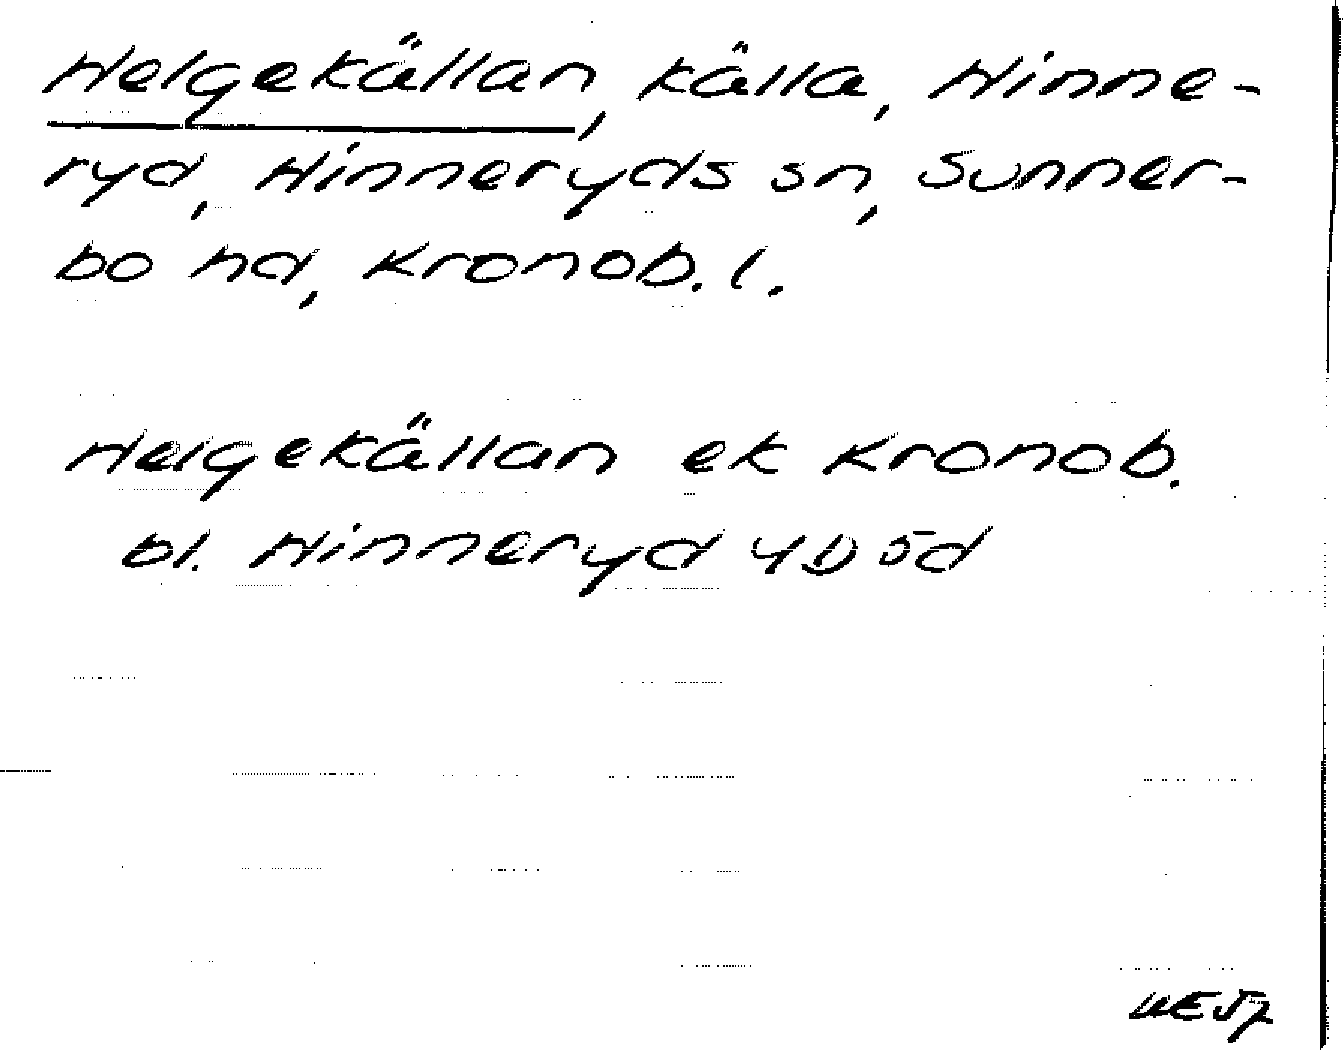 Helgekällan, källa, Hinne-
ryd, Hinneryds sn, Sunner-
bo hd, Kronob. l.
Helgekällan ek Kronob.
bl. Hinneryd 4D 5d